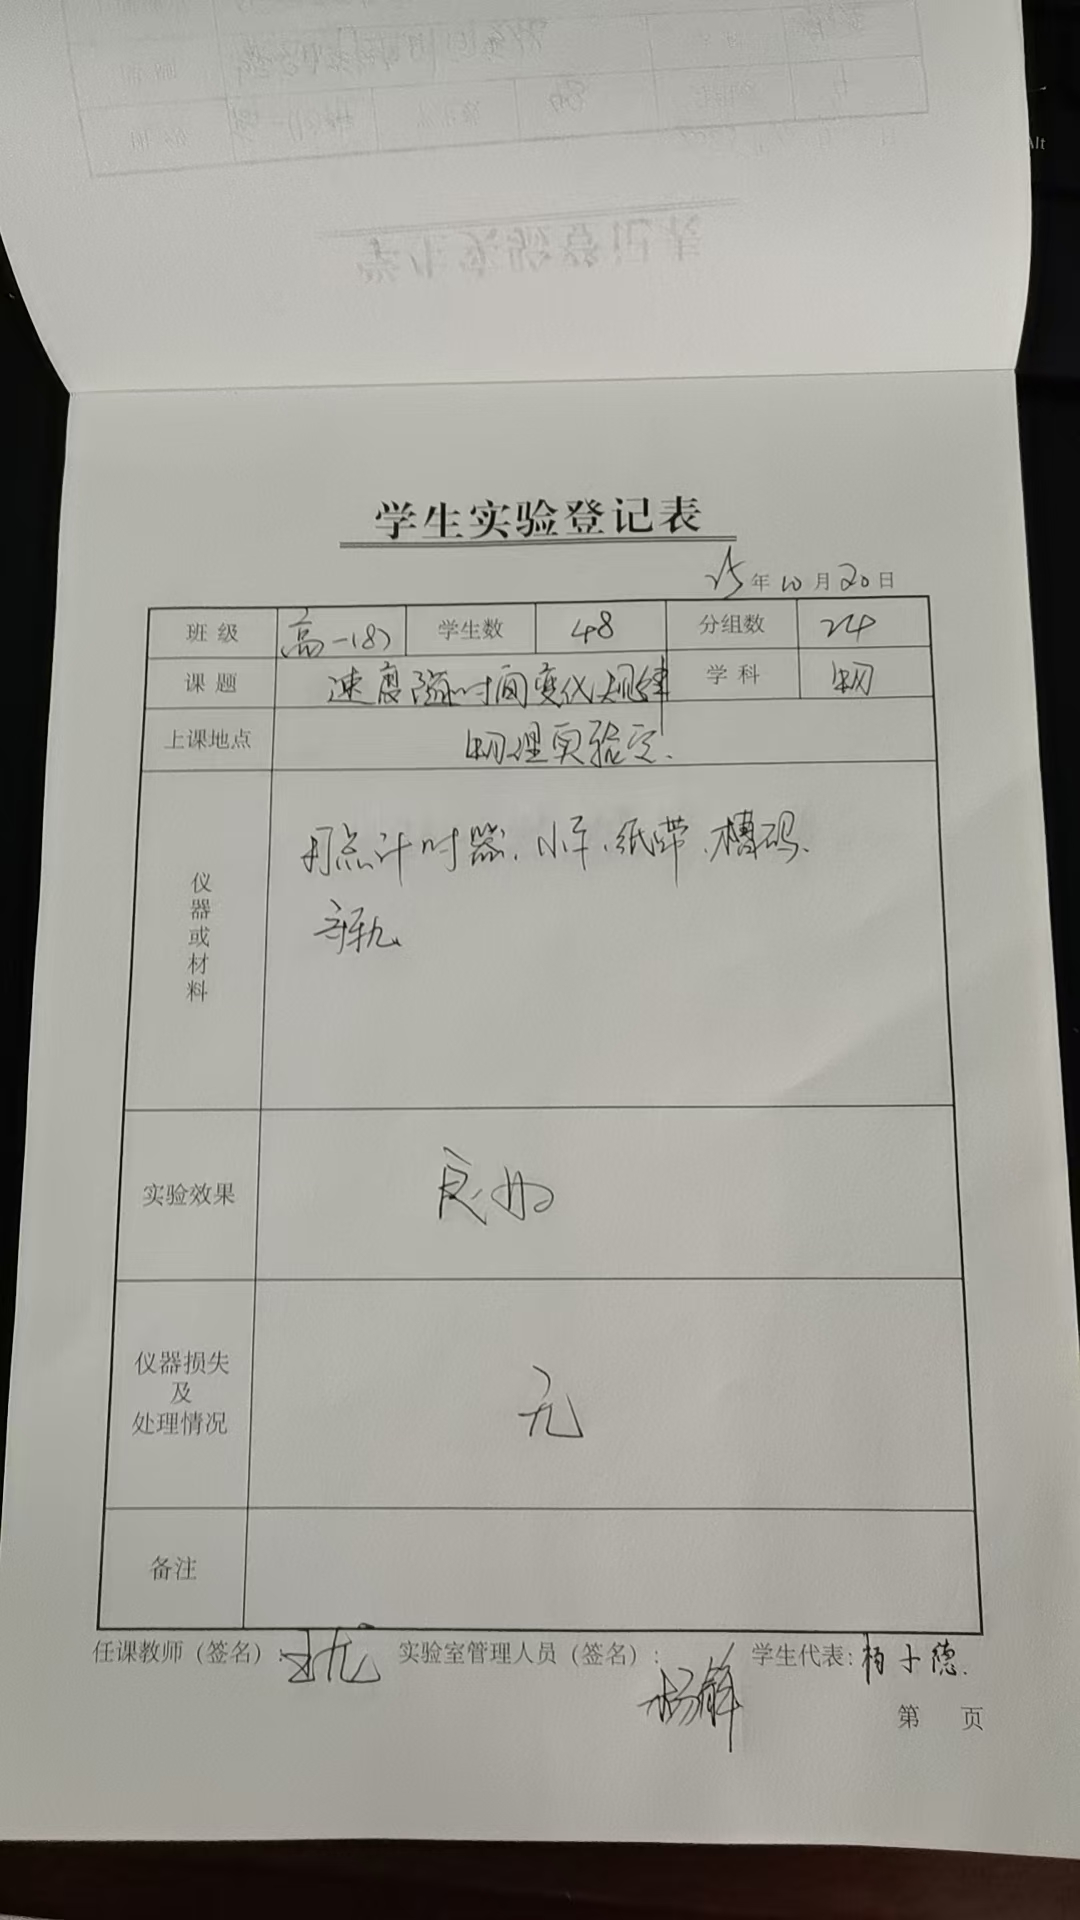 学生实验登记表
25年10月20日
班级 高一(8) 学生数 48 分组数 24
课题 速度随时间变化规律 学科 物
上课地点 物理实验室.
仪器或材料 打点计时器、小车、纸带、槽码、
导轨
实验效果 良好
仪器损失
及
处理情况 无
备注
任课教师（签名）: 实验室管理人员（签名）: 学生代表: 杨子德.
第 页
Alt